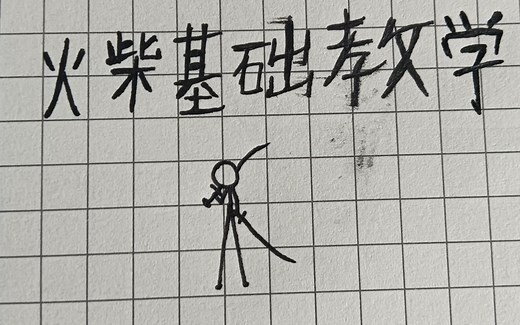 火柴基础教学